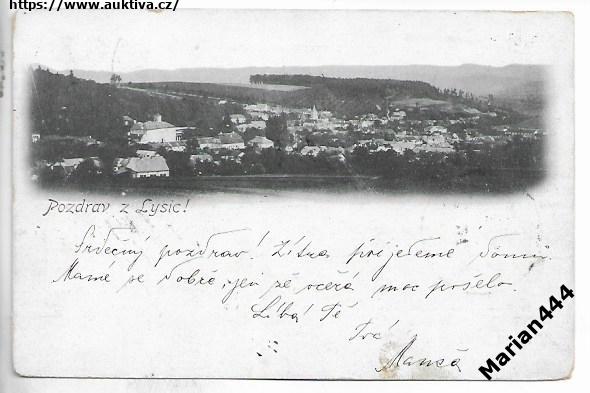 https://www.auktiva.cz/
Pozdrav z Lysic!
Srdečný pozdrav! Zítra přijedeme domů.
Mamě se dobře, jen že včera moc pršelo.
Líbá Tě
Tvá
Marian444